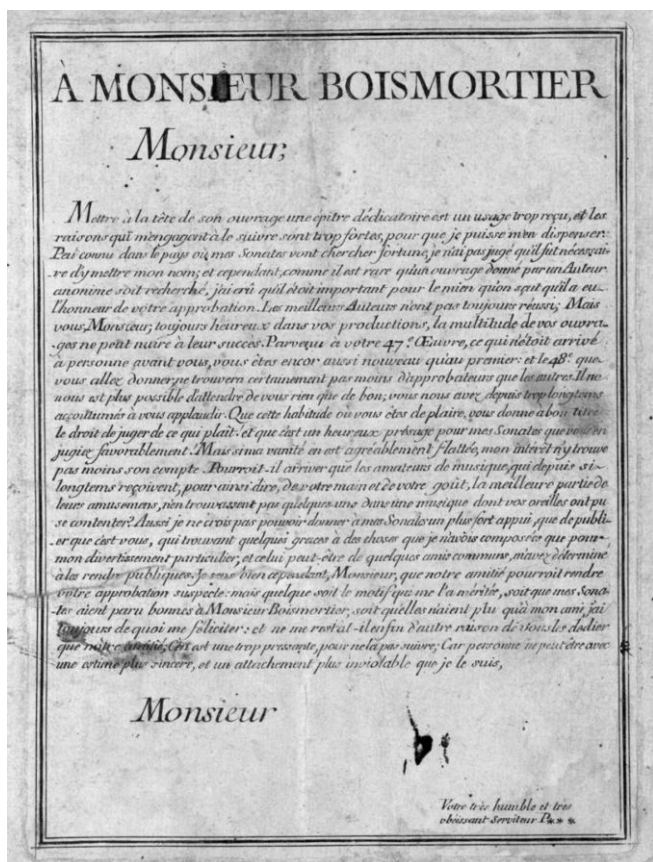 À MONSIEUR BOISMORTIER
Monsieur;
Mettre à la tête de son ouvrage une epitre dédicatoire est un usage trop reçu, et les
raisons qui m'engagent à le suivre sont trop fortes, pour que je puisse m'en dispenser.
Peu connu dans le pays où mes Sonates vont chercher fortune, je n'ai pas jugé qu'il fut nécessai-
re d'y mettre mon nom; et cependant, comme il est rare qu'un ouvrage donné par un Auteur
anonime soit recherché, j'ai crû qu'il étoit important pour le mien qu'on sçut qu'il a eu
l'honneur de votre approbation. Les meilleurs Auteurs n'ont pas toujours réussi; Mais
vous, Monsieur, toujours heureux dans vos productions, la multitude de vos ouvra-
ges ne peut nuire à leur succès. Parvenu à votre 47e. Œuvre, ce qui n'étoit arrivé
à personne avant vous, vous êtes encor aussi nouveau qu'au premier: et le 48e. que
vous allez donner, ne trouvera certainement pas moins d'approbateurs que les autres. Il ne
nous est plus possible d'attendre de vous rien que de bon, vous nous avez depuis trop longtems
accoutumés à vous applaudir. Que cette habitude où vous êtes de plaire, vous donne à bon titre
le droit de juger de ce qui plait! et que c'est un heureux présage pour mes Sonates que vous en
jugiez favorablement! Mais si ma vanité en est agréablement flattée, mon intérêt n'y trouve
pas moins son compte. Pourroit-il arriver que les amateurs de musique, qui depuis si
longtems reçoivent, pour ainsi dire, de votre main et de votre goût, la meilleure partie de
leurs amusemens, n'en trouvassent pas quelques-uns dans une musique dont vos oreilles ont pu
se contenter? Aussi je ne crois pas pouvoir donner à mes Sonates un plus fort appui, que de publi-
er que c'est vous, qui trouvant quelques graces à des choses que je n'avois composées que pour
mon divertissement particulier, et celui peut-être de quelques amis communs, m'avez déterminé
à les rendre publiques. Je sens bien cependant, Monsieur, que notre amitié pourroit rendre
votre approbation suspecte: mais quelque soit le motif qui me l'a mérité, soit que mes Sona-
tes aient paru bonnes à Monsieur Boismortier, soit qu'elles n'aient plu qu'à mon ami, j'ai
toujours de quoi me féliciter: et ne me restat-il enfin d'autre raison de vous les dédier
que notre amitié; C'en est une trop pressante, pour ne la pas suivre; Car personne ne peut être avec
une estime plus sincere, et un attachement plus inviolable que je le suis,
Monsieur
Votre très humble et très
obéissant Serviteur P***